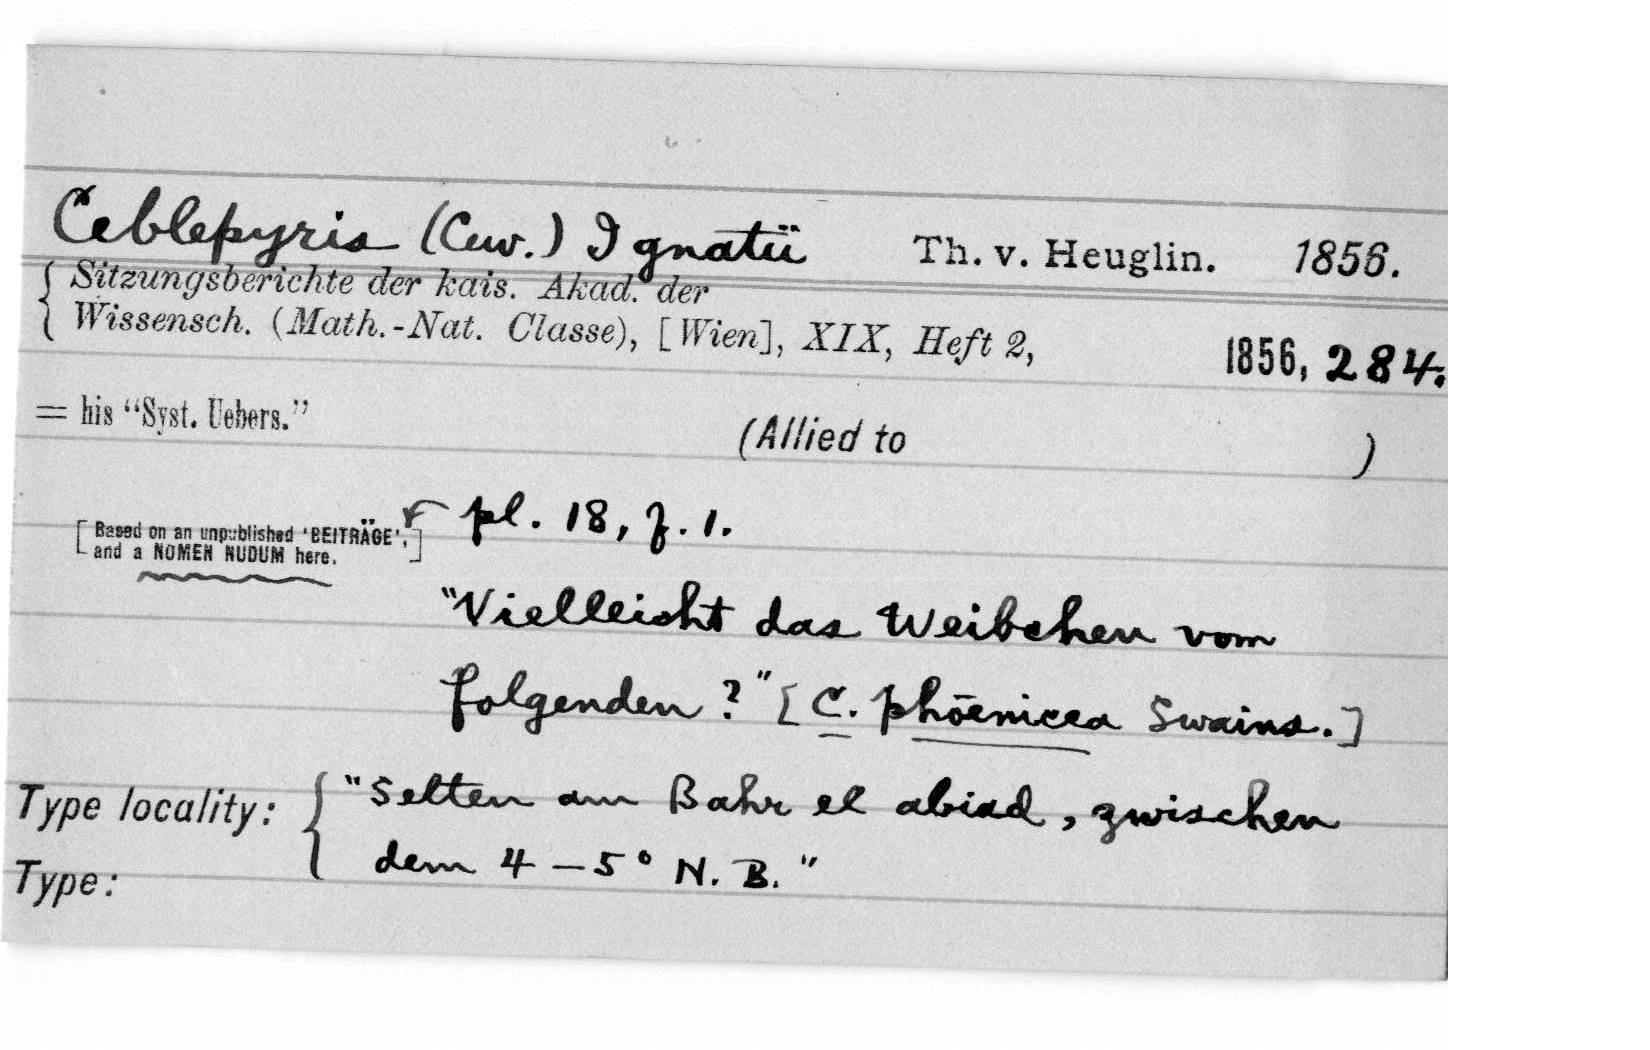 Ceblepyris (Cuv.) Ignatii Th. v. Heuglin. 1856.
Sitzungsberichte der kais. Akad. der
Wissensch. (Math.-Nat. Classe), [Wien], XIX, Heft 2, 1856, 284.
= his “Syst. Uebers.”
(Allied to )
pl. 18, f. 1.
[Based on an unpublished ‘BEITRÄGE’,
and a NOMEN NUDUM here.]
"Vielleicht das Weibchen vom
folgenden?" [C. phōenicea Swains.]
Type locality: { "Selten am Bahr el abiad, zwischen
dem 4–5° N. B."
Type: